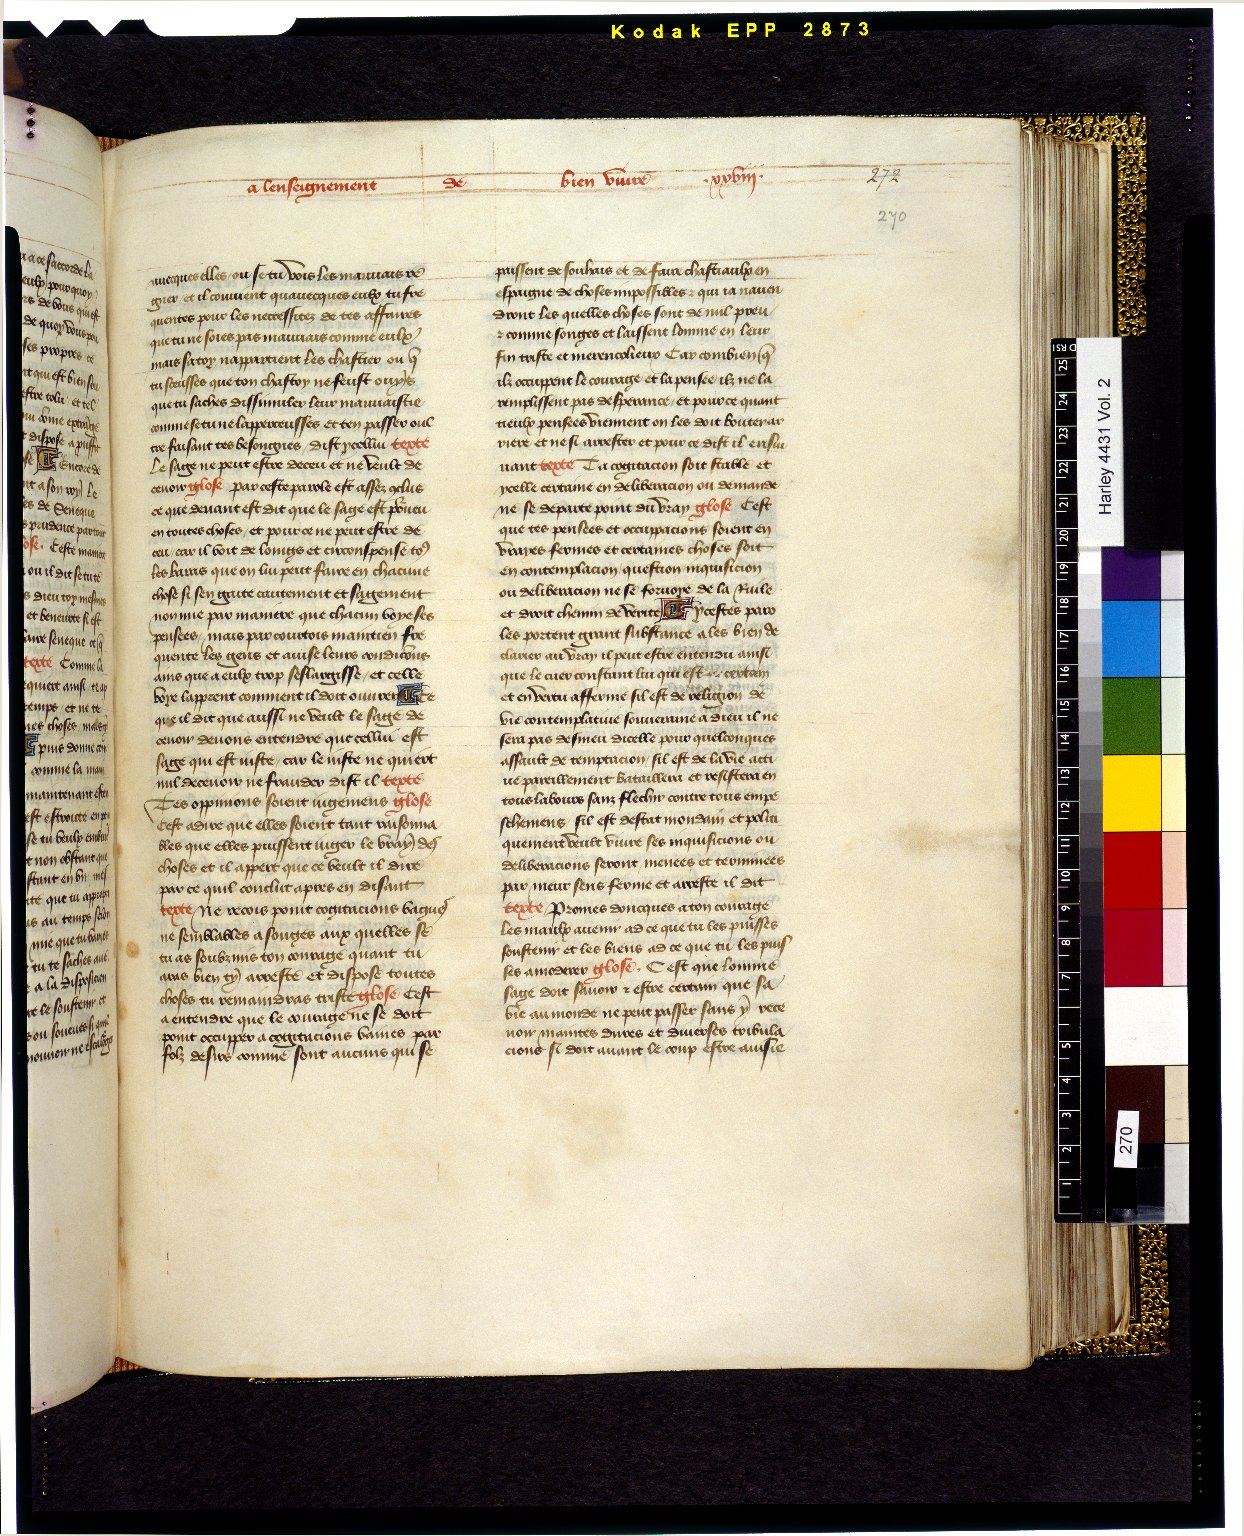 Kodak EPP 2873
a lenseignement de bien viure .xxviii.
272
270
auecques elles / ou se tu vois les mauuais re
gner et il conuient quauecques eulx tu fre
quentes pour les neccessitez de tes affaires
que tu ne soies pas mauuais comme eulx /
mais sa toy nappartient les chastier ou q̄
tu sceusses que ton chastoy ne feust ouy
que tu saches dissimuler leur mauuaistie
comme se tu ne lapperceusses et ten passer oul
tre faisant tes besongnes / dist ycellui texte
Le sage ne peut estre deceu et ne veult de
ceuoir glose par ceste parole est assez
ce que deuant est dit que le sage est
en toutes choses / et pour ce ne peut estre de
ceu / car il voit de loings et circonspense
les baras que on lui peut faire en chacune
chose si sen gaite cautement et sagement
non mie par maniere que chacun voye ses
pensees / mais par courtois maintien fre
quente les gens et auise leurs condicions
ains que a eulx trop seslargisse / et celle
voye lapprent comment il doit ouurer Et ce
que il dit que aussi ne veult le sage de
ceuoir deuons entendre que cellui est
sage qui est iuste / car le iuste ne quiert
nul deceuoir ne frauder dist il texte
Tes oppinions soient iugemens glose
Cest a dire que elles soient tant raisonna
bles que elles puissent iuger le vray des
choses et il appert que ce veult il dire
par ce quil conclut apres en disant
texte / Ne recois point cogitacions vagues
ne semblables a songes aux quelles se
tu as soubzmis ton courage quant tu
aras bien arreste et dispose toutes
choses tu remaindras triste glose Cest
a entendre que le courage ne se doit
point occupper a cogitacions vaines par
folz desirs comme sont aucuns qui se
paissent de souhais et de faire chasteaulx en
espaigne de choses impossibles et qui ia nauen
dront les quelles choses sont de nul preu /
et comme songes et laissent lomme en leur
fin triste et merencolieux Car combien q̄
ilz occuppent le courage et la pensee ilz ne la
remplissent pas desperance / et pour ce quant
tieulx pensees viennent on les doit bouter ar
riere et ne si arrester et pour ce dist il ensui
uant texte Ta cogitacion soit stable et
ycelle certaine en deliberacion ou demande
ne se departe point du vray glose Cest
que tes pensees et occupacions soient en
vrayes fermes et certaines choses soit
en contemplacion / question inquisicion
ou deliberacion ne se foruoye de la Rule
et droit chemin de verite Et ycestes paro
les portent grant substance a les bien de
clairer au vray il peut estre entendu ainsi
que le cuer constant lui qui est certain
et en vertu afferme sil est de religion de
vie contemplatiue souueraine a dieu il ne
sera pas desmeu dicelle pour quelconques
assault de temptacion / sil est de la vie acti
ue pareillement bataillera et resistera en
tous labours sanz flechir contre tous empe
schemens / sil est destat mondain et politi
quement veult viure ses inquisicions ou
deliberacions seront menees et terminees
par meur sens ferme et arreste il dit
texte / Promes doncques a ton courage
les maulx auenir ad ce que tu les puisses
soustenir et les biens ad ce que tu les puis
ses amoderer glose . Cest que lomme
sage doit sauoir et estre certain que sa
vie au monde ne peut passer sans y rece
uoir maintes dures et diuerses tribula
cions si doit auant le coup estre auise
Harley 4431 Vol. 2
270
25
24
23
22
21
20
19
18
17
16
15
14
13
12
11
10
9
8
7
6
5
4
3
2
1